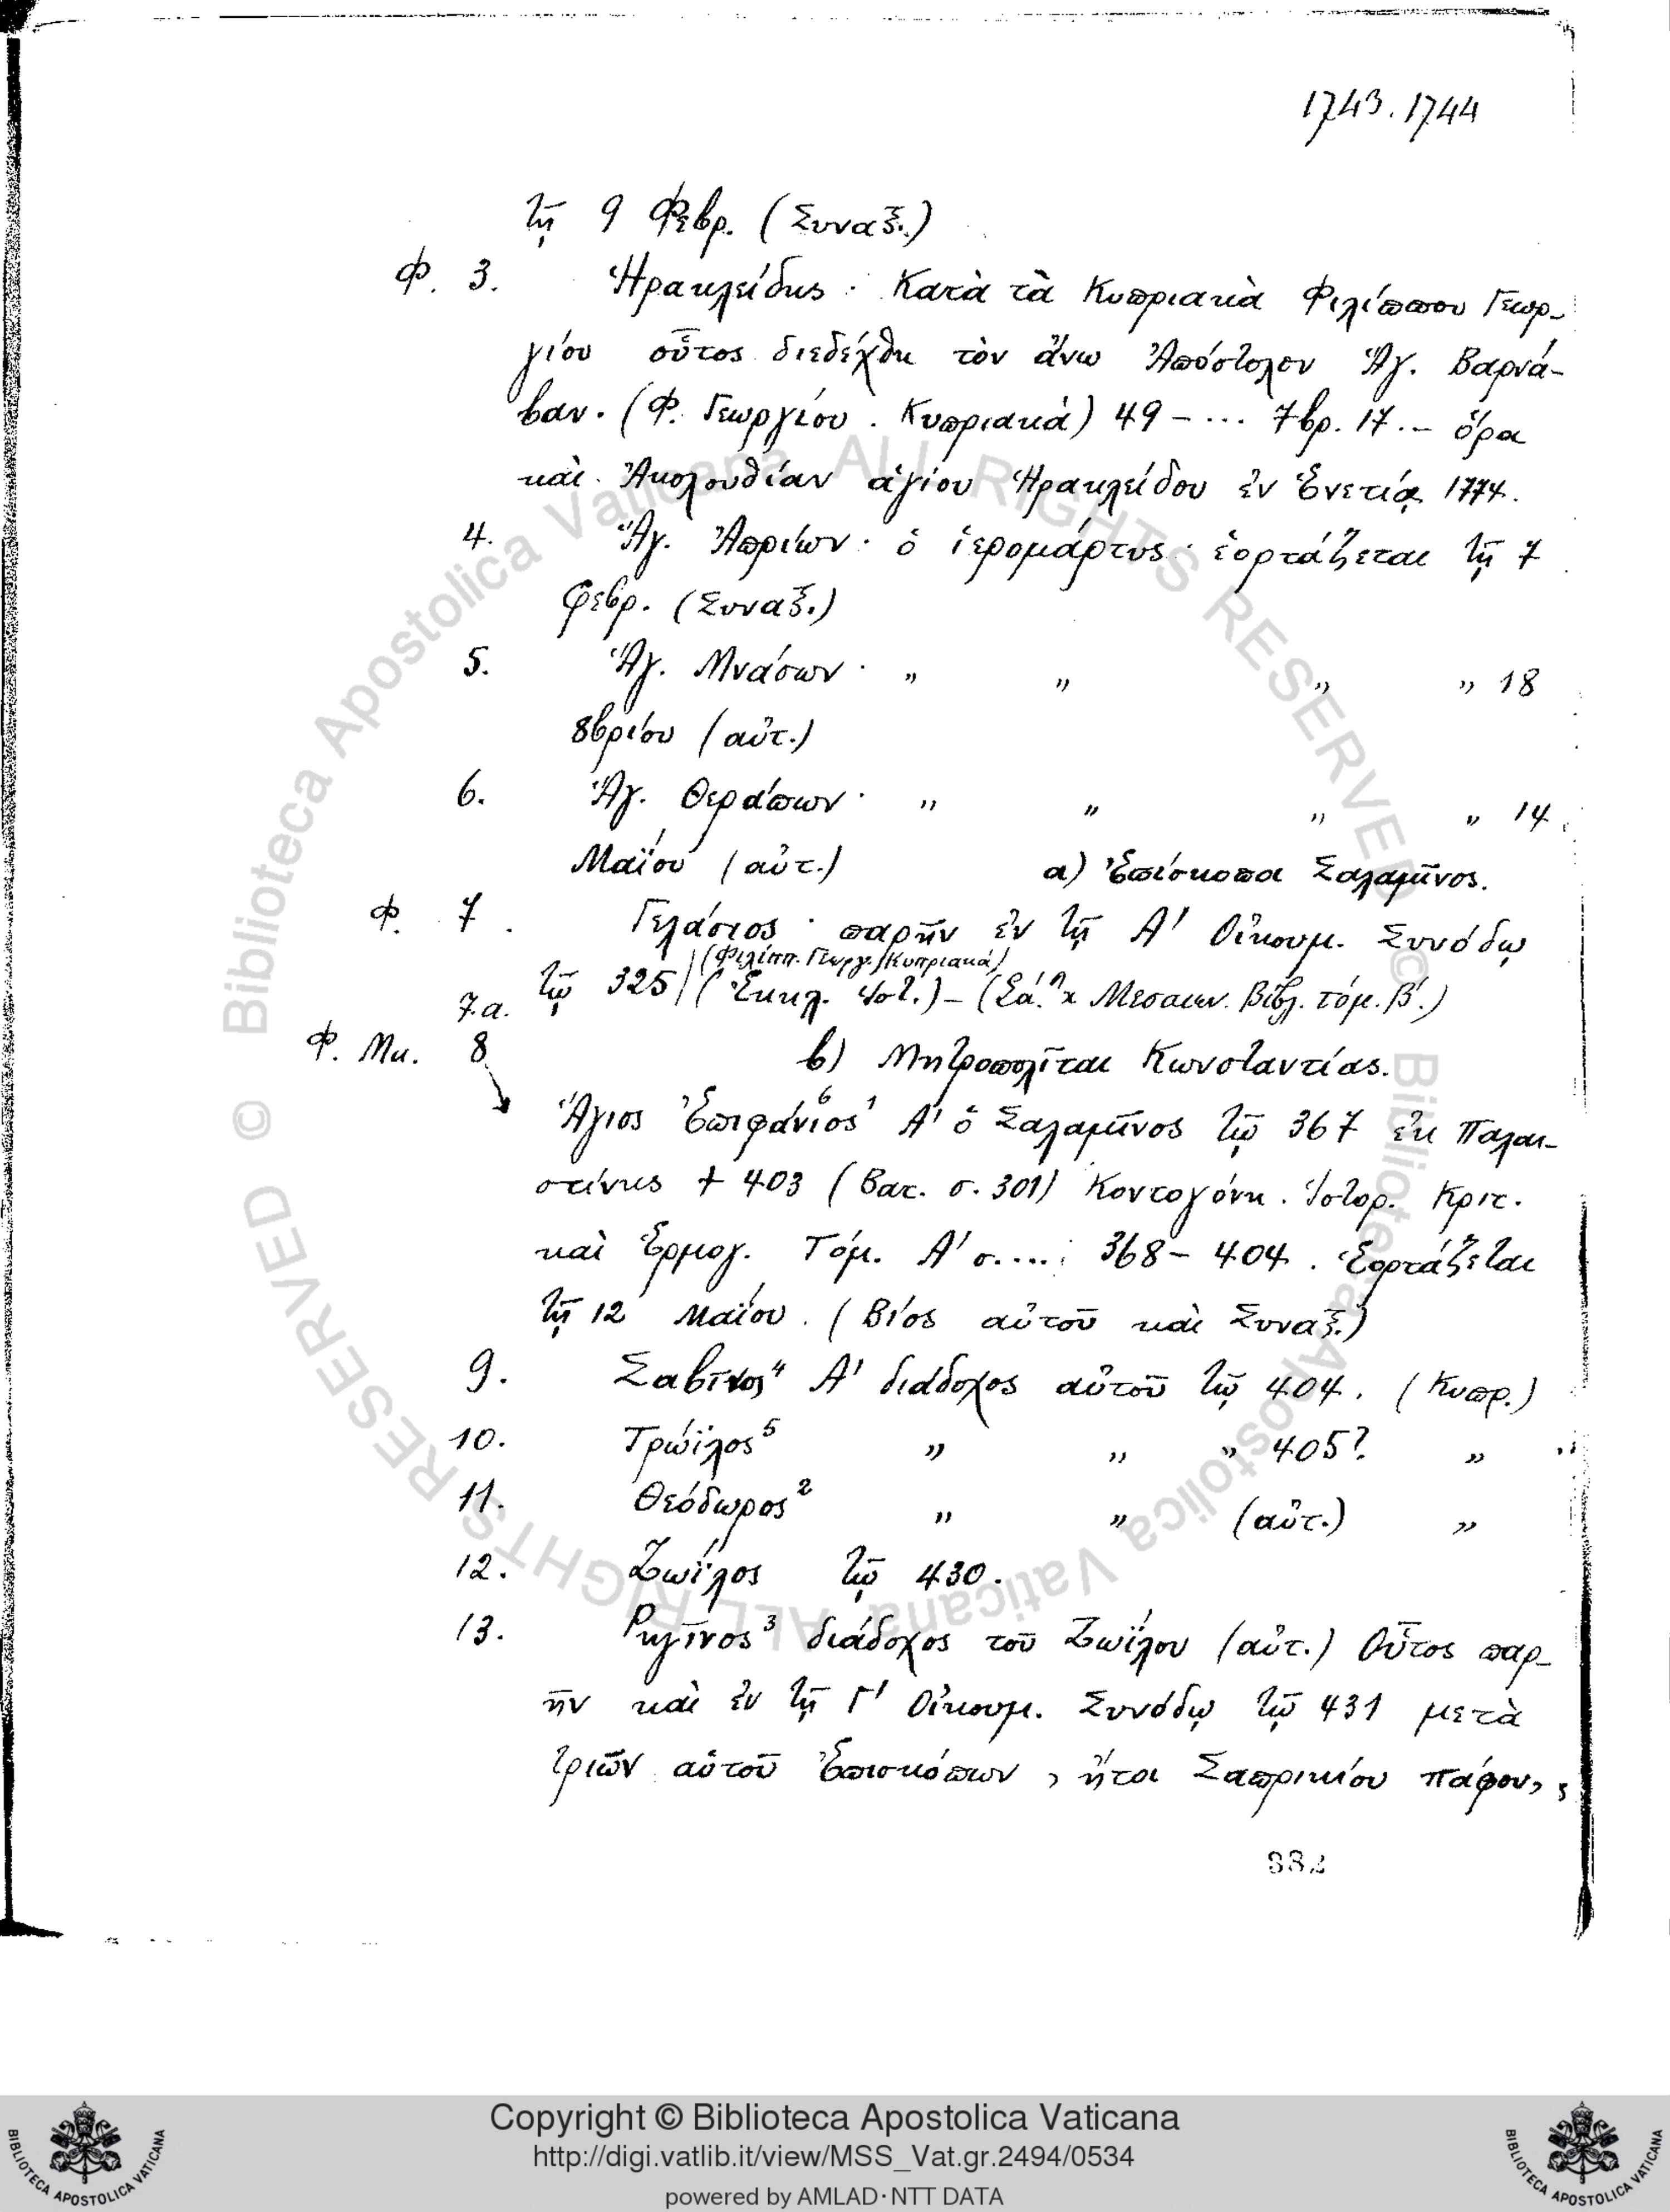 1743. 1744
τῇ 9 Φεβρ. (Συναξ.)
Φ. 3. Ἡρακλείδης · Κατὰ τὰ Κυπριακὰ Φιλίππου Γεωρ-
γίου οὗτος διεδέχθη τὸν ἄνω Ἀπόστολον Ἅγ. Βαρνά-
βαν. (Φ. Γεωργίου. Κυπριακά) 49 – ... 7βρ. 17. – ὅρα
καὶ Ἀκολουθίαν ἁγίου Ἡρακλείδου ἐν Ἑνετίᾳ 1774.
4. Ἅγ. Ἀπρίων · ὁ ἱερομάρτυς · ἑορτάζεται τῇ 7
φεβρ. (Συναξ.)
5. Ἅγ. Μνάσων · „ „ „ „ 18
8βρίου (αὐτ.)
6. Ἅγ. Θεράπων · „ „ „ „ 14
Μαΐου (αὐτ.) α) Ἐπίσκοποι Σαλαμῖνος.
Φ. 7. Γελάσιος · παρῆν ἐν τῇ Α' Οἰκουμ. Συνόδῳ
(Φιλίππ. Γεωργ. Κυπριακά)
7.α. τῷ 325 / (Ἐκκλ. Ἱστ.) – (Σάθα Μεσαιων. Βιβλ. τόμ. β'.)
Φ. Μκ. 8 β) Μητροπολῖται Κωνσταντίας.
Ἅγιος Ἐπιφάνιος 6 1 Α' ὁ Σαλαμῖνος τῷ 367 ἐκ Παλαι-
στίνης + 403 (Βατ. σ. 301) Κοντογόνη. Ἱστορ. Κριτ.
καὶ Ἑρμογ. Τόμ. Α' σ.... : 368 – 404. Ἑορτάζεται
τῇ 12 Μαΐου. (Βίος αὐτοῦ καὶ Συναξ.)
9. Σαβῖνος 4 Α' διάδοχος αὐτοῦ τῷ 404. (Κυπρ.)
10. Τρώϊλος 5 „ „ „ 405? „
11. Θεόδωρος 2 „ „ (αὐτ.) „
12. Ζωΐλος τῷ 430.
13. Ρηγῖνος 3 διάδοχος τοῦ Ζωΐλου (αὐτ.) Οὗτος παρ-
ῆν καὶ ἐν τῇ Γ' Οἰκουμ. Συνόδῳ τῷ 431 μετὰ
τριῶν αὑτοῦ Ἐπισκόπων, ἤτοι Σαπρικίου Πάφου,
882
© Biblioteca Apostolica Vaticana ALL RIGHTS RESERVED © Biblioteca Apostolica Vaticana ALL RIGHTS RESERVED
Copyright © Biblioteca Apostolica Vaticana
http://digi.vatlib.it/view/MSS_Vat.gr.2494/0534
powered by AMLAD·NTT DATA
BIBLIOTECA APOSTOLICA VATICANA
BIBLIOTECA APOSTOLICA VATICANA